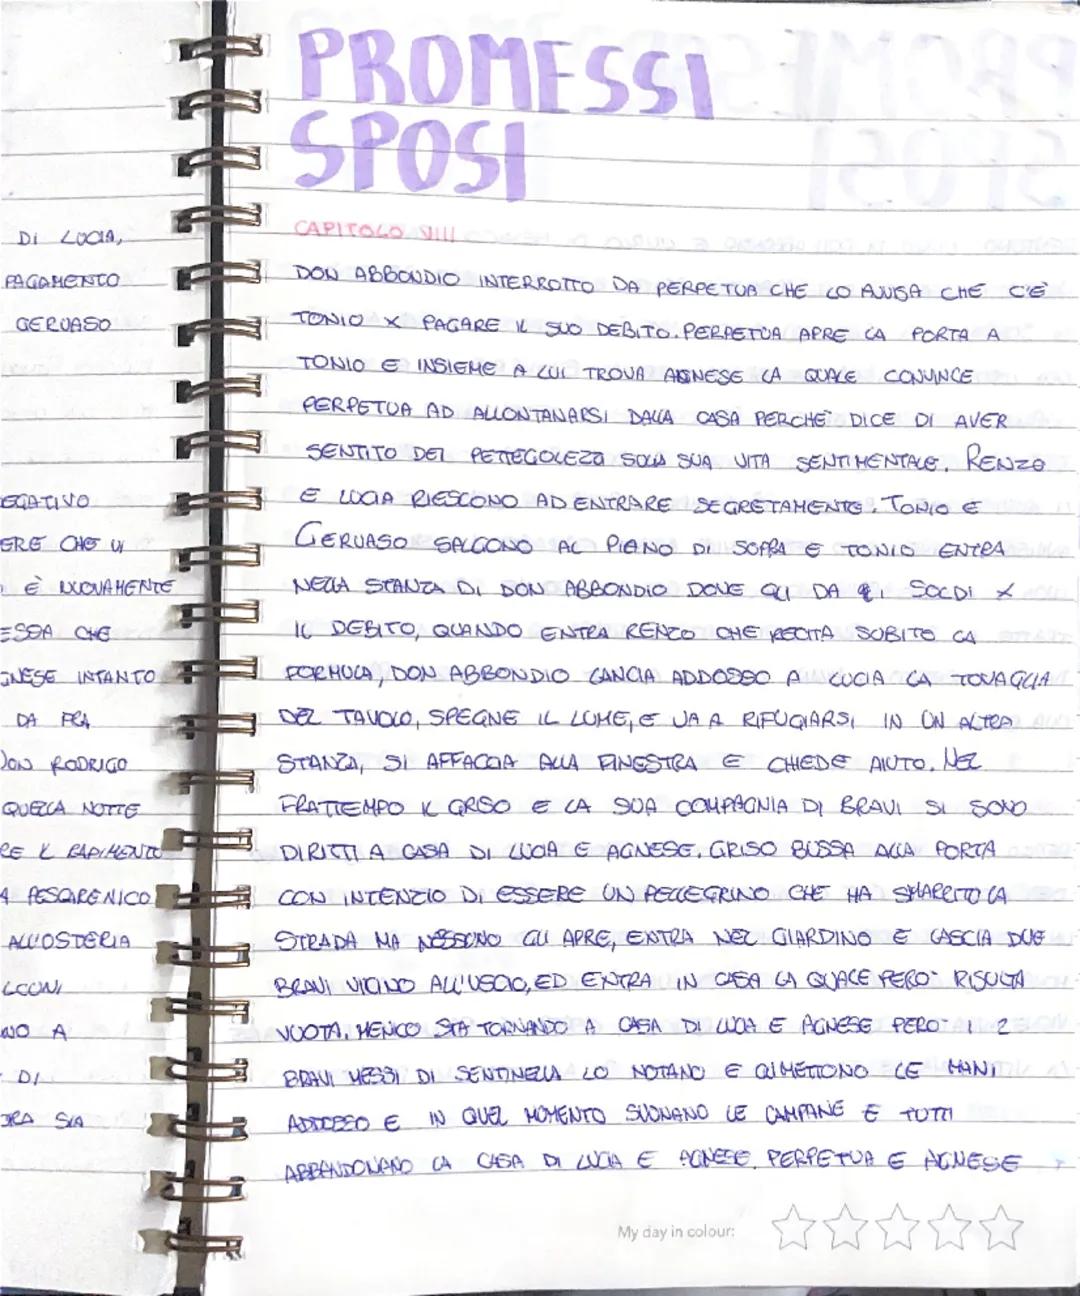 PROMESSI
SPOSI
CAPITOLO VIII
DON ABBONDIO INTERROTTO DA PERPETUA CHE LO AVVISA CHE C'È
TONIO X PAGARE IL SUO DEBITO. PERPETUA APRE LA PORTA A
TONIO E INSIEME A LUI TROVA AGNESE LA QUALE CONVINCE
PERPETUA AD ALLONTANARSI DALLA CASA PERCHÈ DICE DI AVER
SENTITO DEI PETTEGOLEZZI SULLA SUA VITA SENTIMENTALE. RENZO
E LUCIA RIESCONO AD ENTRARE SEGRETAMENTE. TONIO E
GERVASO SALGONO AL PIANO DI SOPRA E TONIO ENTRA
NELLA STANZA DI DON ABBONDIO DOVE GLI DA I SOLDI X
IL DEBITO, QUANDO ENTRA RENZO CHE RECITA SUBITO LA
FORMULA, DON ABBONDIO LANCIA ADDOSSO A LUCIA LA TOVAGLIA
DEL TAVOLO, SPEGNE IL LUME, E VA A RIFUGIARSI IN UN ALTRA
STANZA, SI AFFACCIA ALLA FINESTRA E CHIEDE AIUTO. NEL
FRATTEMPO IL GRISO E LA SUA COMPAGNIA DI BRAVI SI SONO
DIRITTI A CASA DI LUCIA E AGNESE. GRISO BUSSA ALLA PORTA
CON INTENZIO DI ESSERE UN PELLEGRINO CHE HA SMARRITO LA
STRADA MA NESSUNO GLI APRE, ENTRA NEL GIARDINO E LASCIA DUE
BRAVI VICINO ALL'USCIO, ED ENTRA IN CASA LA QUALE PERÒ RISULTA
VUOTA. MENICO STA TORNANDO A CASA DI LUCIA E AGNESE PERÒ I 2
BRAVI MESSI DI SENTINELLA LO NOTANO E GLI METTONO LE MANI
ADDOSSO E IN QUEL MOMENTO SUONANO LE CAMPANE E TUTTI
ABBANDONANO LA CASA DI LUCIA E AGNESE. PERPETUA E AGNESE
My day in colour:
DI LUCIA,
PAGAMENTO
GERVASO
EGATIVO
ERE CHE VI
È NUOVAMENTE
ESSA CHE
GNESE INTANTO
DA FRA
DON RODRIGO
QUELLA NOTTE
RE IL RAPIMENTO
A PESCARENICO
ALL'OSTERIA
LCUNI
NO A
DI
ORA SIA